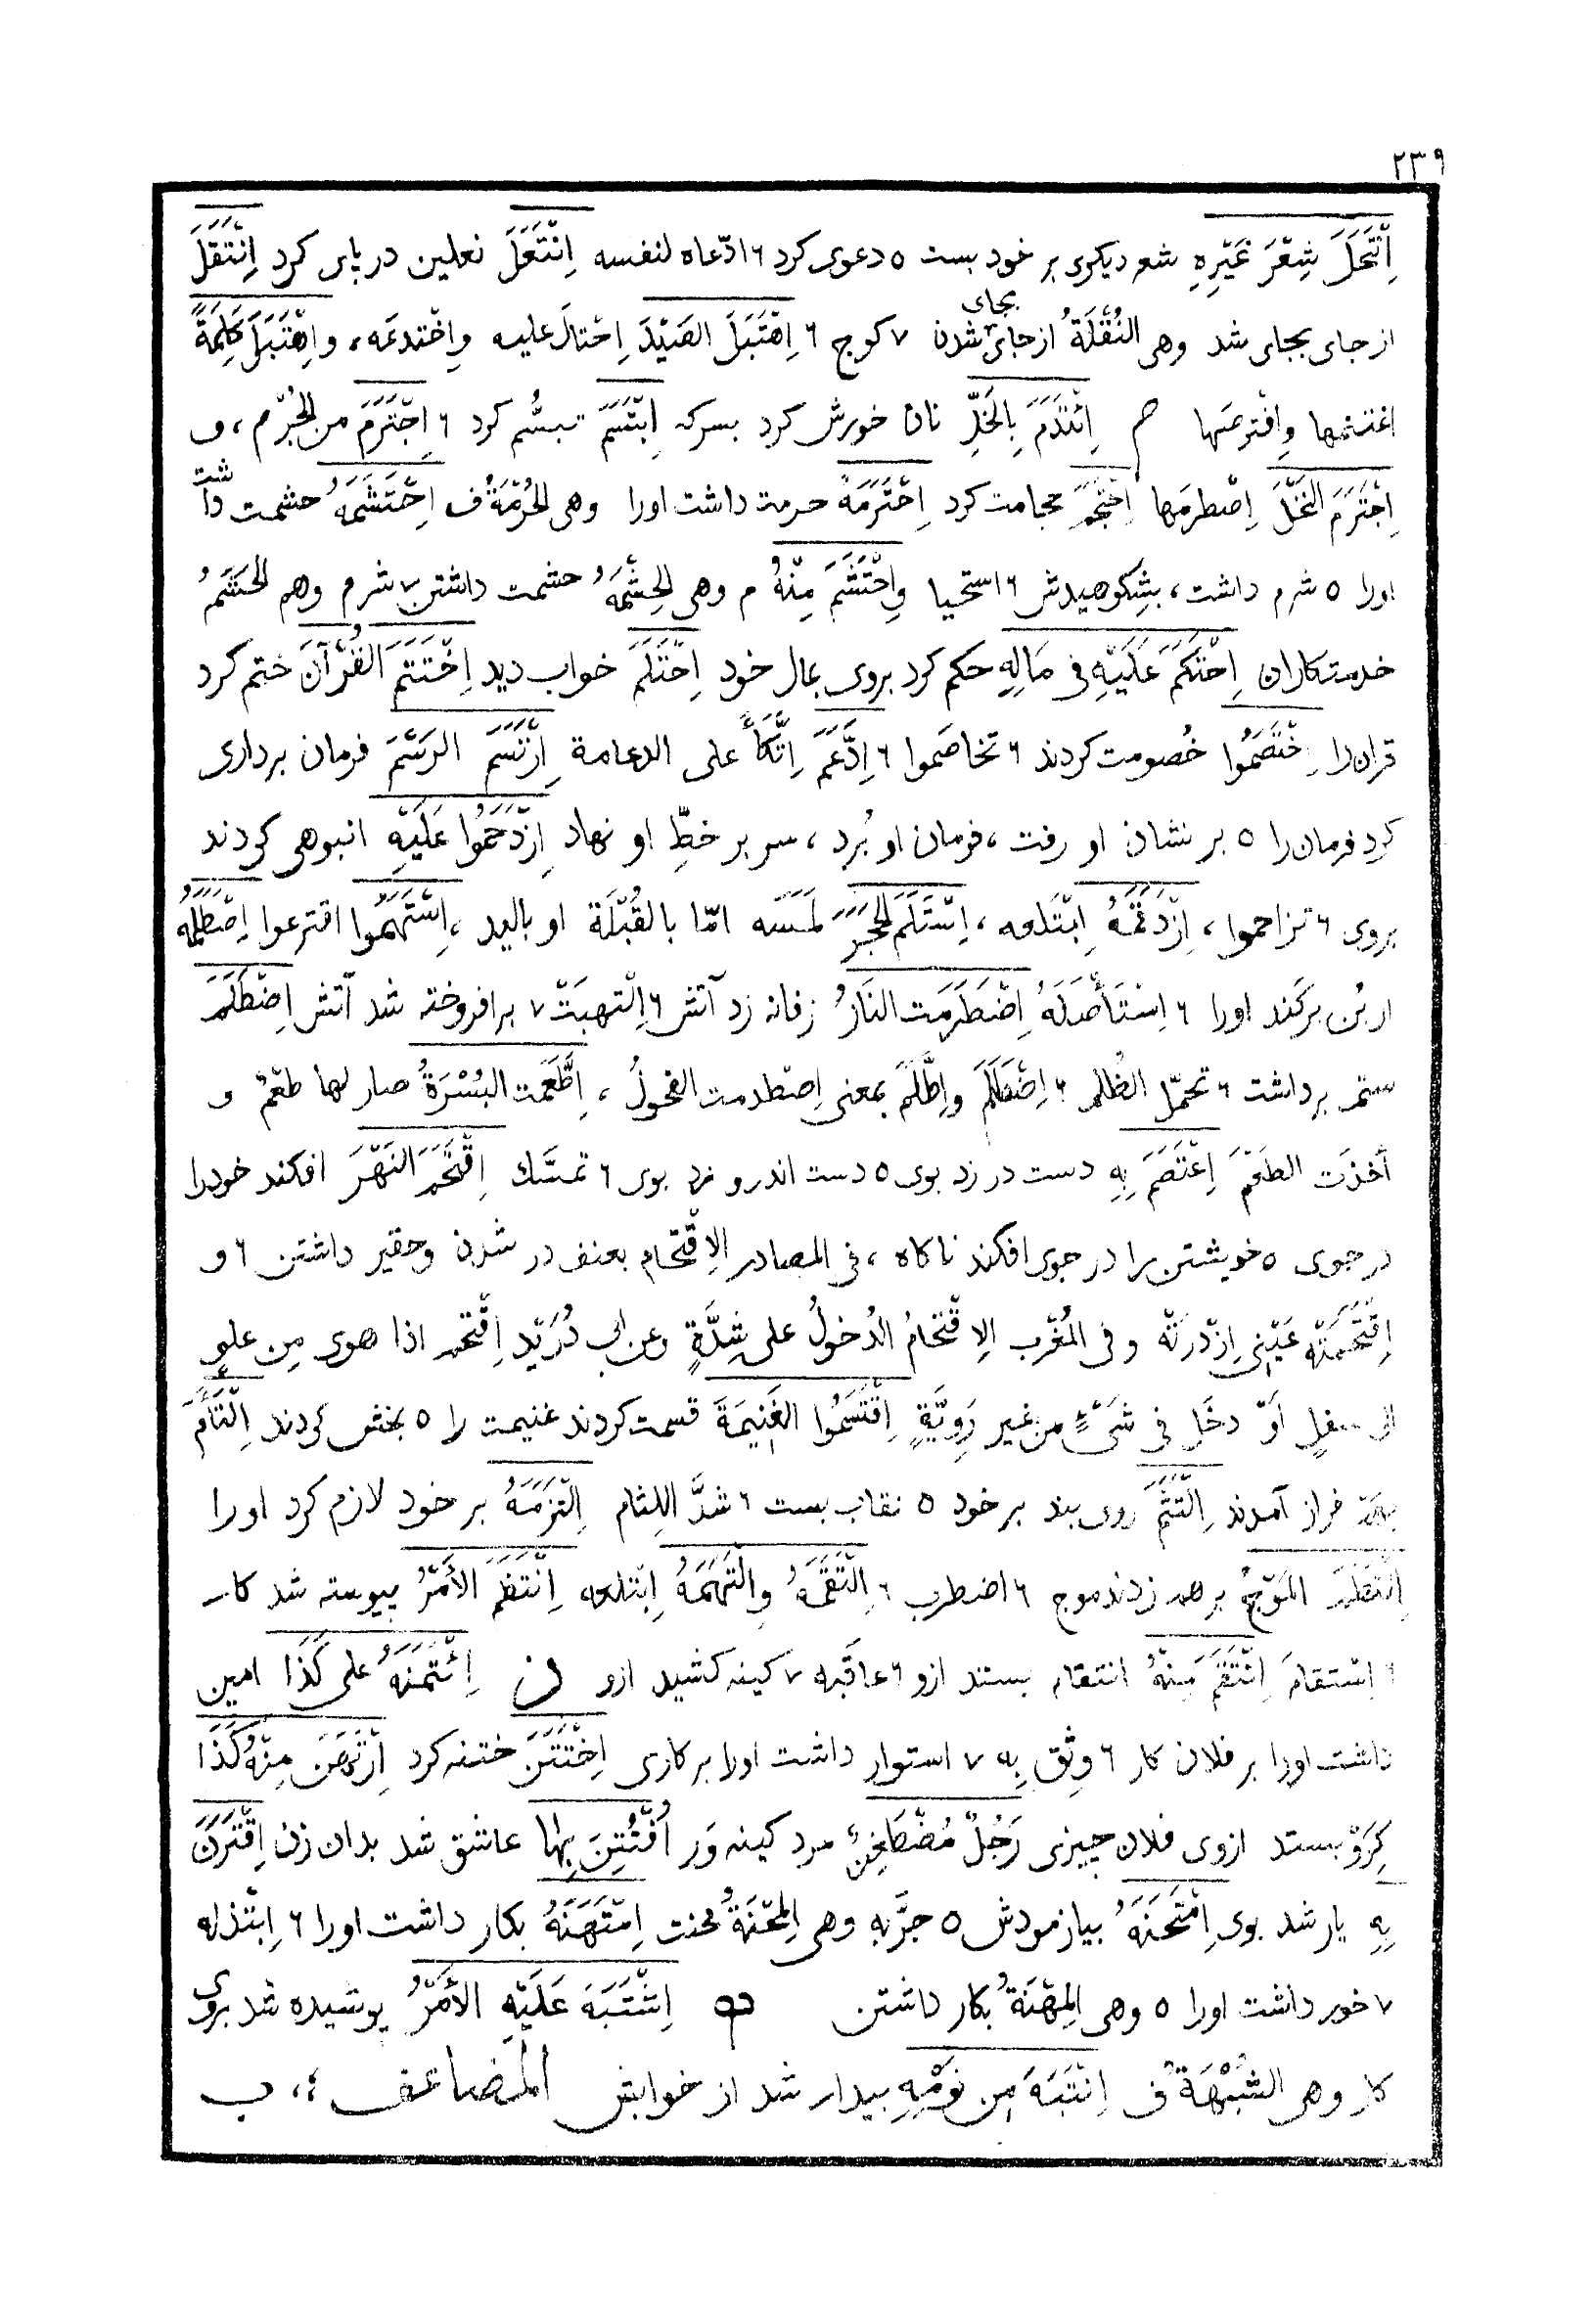 ٢٣٩
اِنْتَحَلَ شِعْرَ غَيْرِهِ شعر ديكرى بر خود بست ٥ دعوى كرد ٦ ادّعاه لنفسه اِنْتَعَلَ نعلين در پاى كرد اِنْتَقَلَ
از جاى بجاى شد وهى النُقْلَةُ از جاى بجاى شدن ٧ كوج ٦ اِهْتَبَلَ الصَيْدَ اِحْتالَ عليه وِاخْتدعَه، وِاهْتَبَلَ كَلِمَةً
اغتنمها وِافْترصَها م اِئْتَدَمَ بِالخَلِّ نان خورش كرد بسركه اِبْتَسَمَ تبسُّم كرد ٦ اِجْتَرَمَ من الجُرْم، و
اِجْتَرَمَ النَخْلَ اِصْطرمَها اِحْتَجَمَ حجامت كرد اِحْتَرَمَهُ حرمت داشت اورا وهى الحُرْمَةُ ف اِحْتَشَمَهُ حشمت داشت
اورا ٥ شرم داشت، بشِكوهيدش ٦ استحيا وِاحْتَشَمَ مِنْهُ م وهى الحِشْمَةُ حشمت داشتن ٧ شرم وهم الحَشَمُ
خدمتكاران اِحْتَكَمَ عَلَيْهِ فى مَالِهِ حكم كرد بروى بمال خود اِحْتَلَمَ خواب ديد اِخْتَتَمَ القُرْآنَ ختم كرد
قرانرا اِخْتَصَمُوا خُصومت كردند ٦ تخاصَموا ٦ اِدَّعَمَ اِتَّكَأَ على الدعامة اِرْتَسَمَ الرَسْمَ فرمان بردارى
كرد فرمان را ٥ بر نشان او رفت، فرمان او بُرد، سر بر خطِّ او نهاد اِزْدَحَمُوا عَلَيْهِ انبوهى كردند
بروى ٦ تزاحموا، اِزْدَقَمَهُ اِبْتَلعه، اِسْتَلَمَ الحَجَرَ لمَسَه امّا بالقُبْلَة او باليد، اِسْتَهَمُوا اقترعوا اِصْطَلَمَهُ
از بُن بركَند اورا ٦ اِسْتَأْصَلَهُ اِضْطَرَمَت النَارُ زفانه زد آتش ٦ اِلْتهبَتْ ٧ برافروخته شد آتش اِضْطَلَمَ
ستم برداشت ٦ تحمّل الظُلم ٦ اِضْطَلَمَ وِاظَّلَمَ بمعنى اِصْطدمت الفحولُ، اِطَّعَمَت البُسْرَةُ صار لها طعْمٌ و
أخذَت الطَعْمَ اِعْتَصَمَ بِهِ دست در زد بوى ٥ دست اندرو زد بوى ٦ تمسَّك اِقْتَحَمَ النَهْرَ افكند خودرا
در جوى ٥ خويشتن را در جوى افكند ناكاه، فى المصادر الاِقْتِحَام بعنف در شدن وحقير داشتن ٦ و
اِقْتَحَمَتْه عَيْنِى اِزْدرَتْه وفى المُغْرِب الاِقْتِحَامُ الدُخولُ على شِدَّةٍ وعن ابى دُرَيْد اِقْتحم اذا هوى مِن علوٍ
الى سفلٍ أوْ دخَل فى شَىْءٍ من غير رَوِيَّةٍ اِقْتَسَمُوا الغَنِيمَةَ قسمت كردند غنيمت را ٥ بخش كردند اِلْتَأَمَ
فراز آمدند اِلْتَثَمَ روى بند بر خود ٥ نقاب بست ٦ شدَّ اللِثام اِلْتَزَمَهُ بر خود لازم كرد اورا
اِلْتَطَمَ المَوْجُ برهم زدند موج ٦ اضطرب ٦ اِلْتَقَمَهُ وِالْتَهَمَهُ اِبْتلعه اِنْتَظَمَ الأَمْرُ پيوسته شد كار
٦ اِسْتقامَ اِنْتَقَمَ مِنْهُ انتقام بستد ازو ٦ عاقَبه ٧ كينه كشيد ازو ن اِئْتَمَنَهُ على كَذَا امين
داشت اورا بر فلان كار ٦ وثِق بِه ٧ استوار داشت اورا بر كارى اِخْتَتَنَ ختنه كرد اِرْتَهَنَ مِنْهُ كَذَا
كِرَوْ بستد ازوى فلان چيزى رَجُلٌ مُضْطَغِنٌ مرد كينه وَر اُفْتُتِنَ بِهَا عاشق شد بدان زن اِقْتَرَنَ
بِهِ يار شد بوى اِمْتَحَنَهُ بيازمودش ٥ جرَّبه وهى المِحْنَةُ محنت اِمْتَهَنَهُ بكار داشت اورا ٦ اِبْتذله
٧ خور داشت اورا ٥ وهى المِهْنَةُ بكار داشتن ه اِشْتَبَهَ عَلَيْهِ الأَمْرُ پوشيده شد بروى
كار وهى الشُبْهَةُ ف اِنْتَبَهَ مِن نَوْمِهِ بيدار شد از خوابش المضاعف ،؛ ب